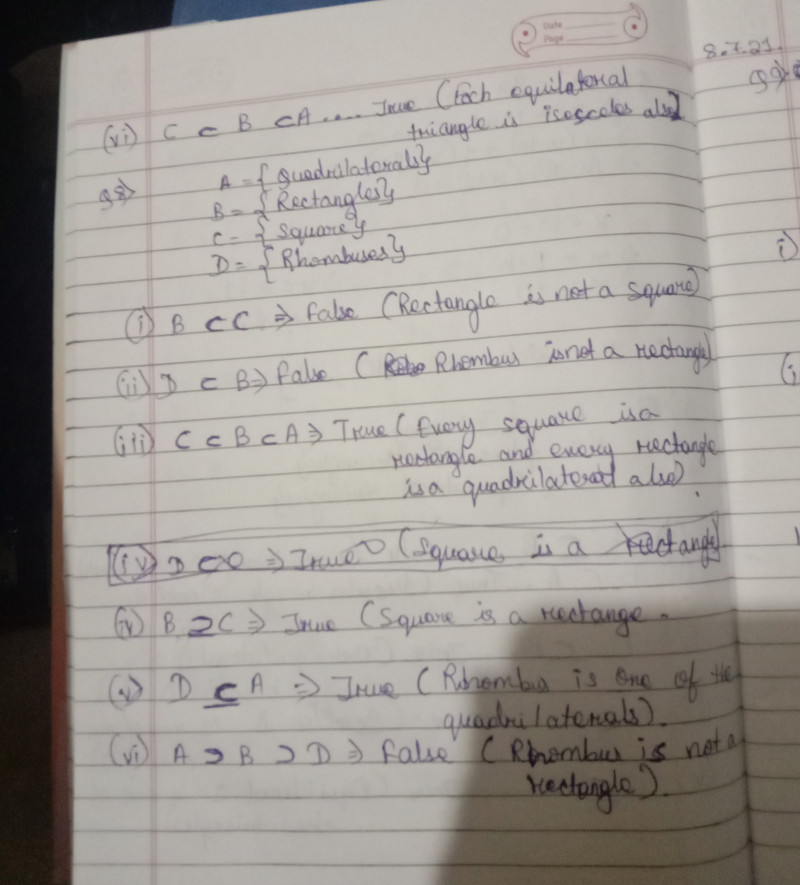 Date
Page
8.7.21
(vi) C ⊂ B ⊂ A .... True (Each equilateral
triangle is isosceles also)
Q8) A = { Quadrilaterals}
B = { Rectangles}
C = { Square}
D = { Rhombuses}
(i) B ⊂ C ⇒ False (Rectangle is not a square)
(ii) D ⊂ B ⇒ False ( Rhombus is not a rectangle)
(iii) C ⊂ B ⊂ A ⇒ True ( Every square is a
rectangle and every rectangle
is a quadrilateral also)
(iv) D ⊂ C ⇒ True (Square is a rectangle)
(iv) B ⊇ C ⇒ True (Square is a rectange.
(v) D ⊆ A ⇒ True ( Rhombus is one of the
quadrilaterals).
(vi) A ⊃ B ⊃ D ⇒ False ( Rhombus is not a
rectangle).
i)